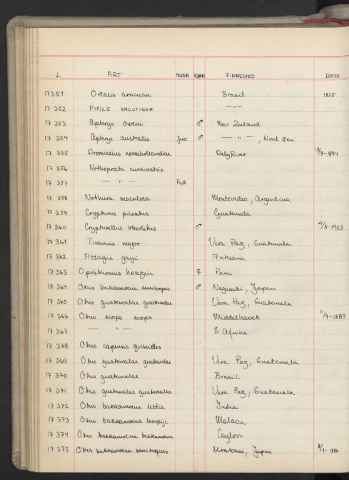 L ART ALDER KJØNN FINNESTED DATO
17351 Ortalis araucuan Brasil 1825
17352 PIPILE JACUTINGA —"—
17353 Apteryx oweni ♂ New Zealand
17354 Apteryx australis Juv. ♂ — " —, Nord øen
17355 Dromiceius novaehollandiae Daly River
17356 Nothoprocta curvirostris
17357 — " — Pull
17358 Nothura maculosa Montevideo, Argentina
17359 Crypturus pileatus Guatemala
17360 Crypturellus obsoletus ♂
17361 Tinamus major Vera Paz, Guatemala
17362 Attagis gayi
17363 Opisthocomus hoazin ♀ Peru
17364 Otus bakkamoena semitorques ♂ Nagasaki, Japan
17365 Otus guatemalae guatemalae Vera Paz, Guatemala
17366 Otus scops scops Middelhavet
17367 — " — E. Africa
17368 Otus capensis
17369 Otus guatemalae guatemalae Vera Paz, Guatemala
17370 Otus guatemalae Brasil
17371 Otus guatemalae guatemalae Vera Paz, Guatemala
17372 Otus bakkamoena lettia India
17373 Otus bakkamoena lempiji Malacca
17374 Otus bakkamoena bakkamoena Ceylon
17375 Otus bakkamoena semitorques Japan